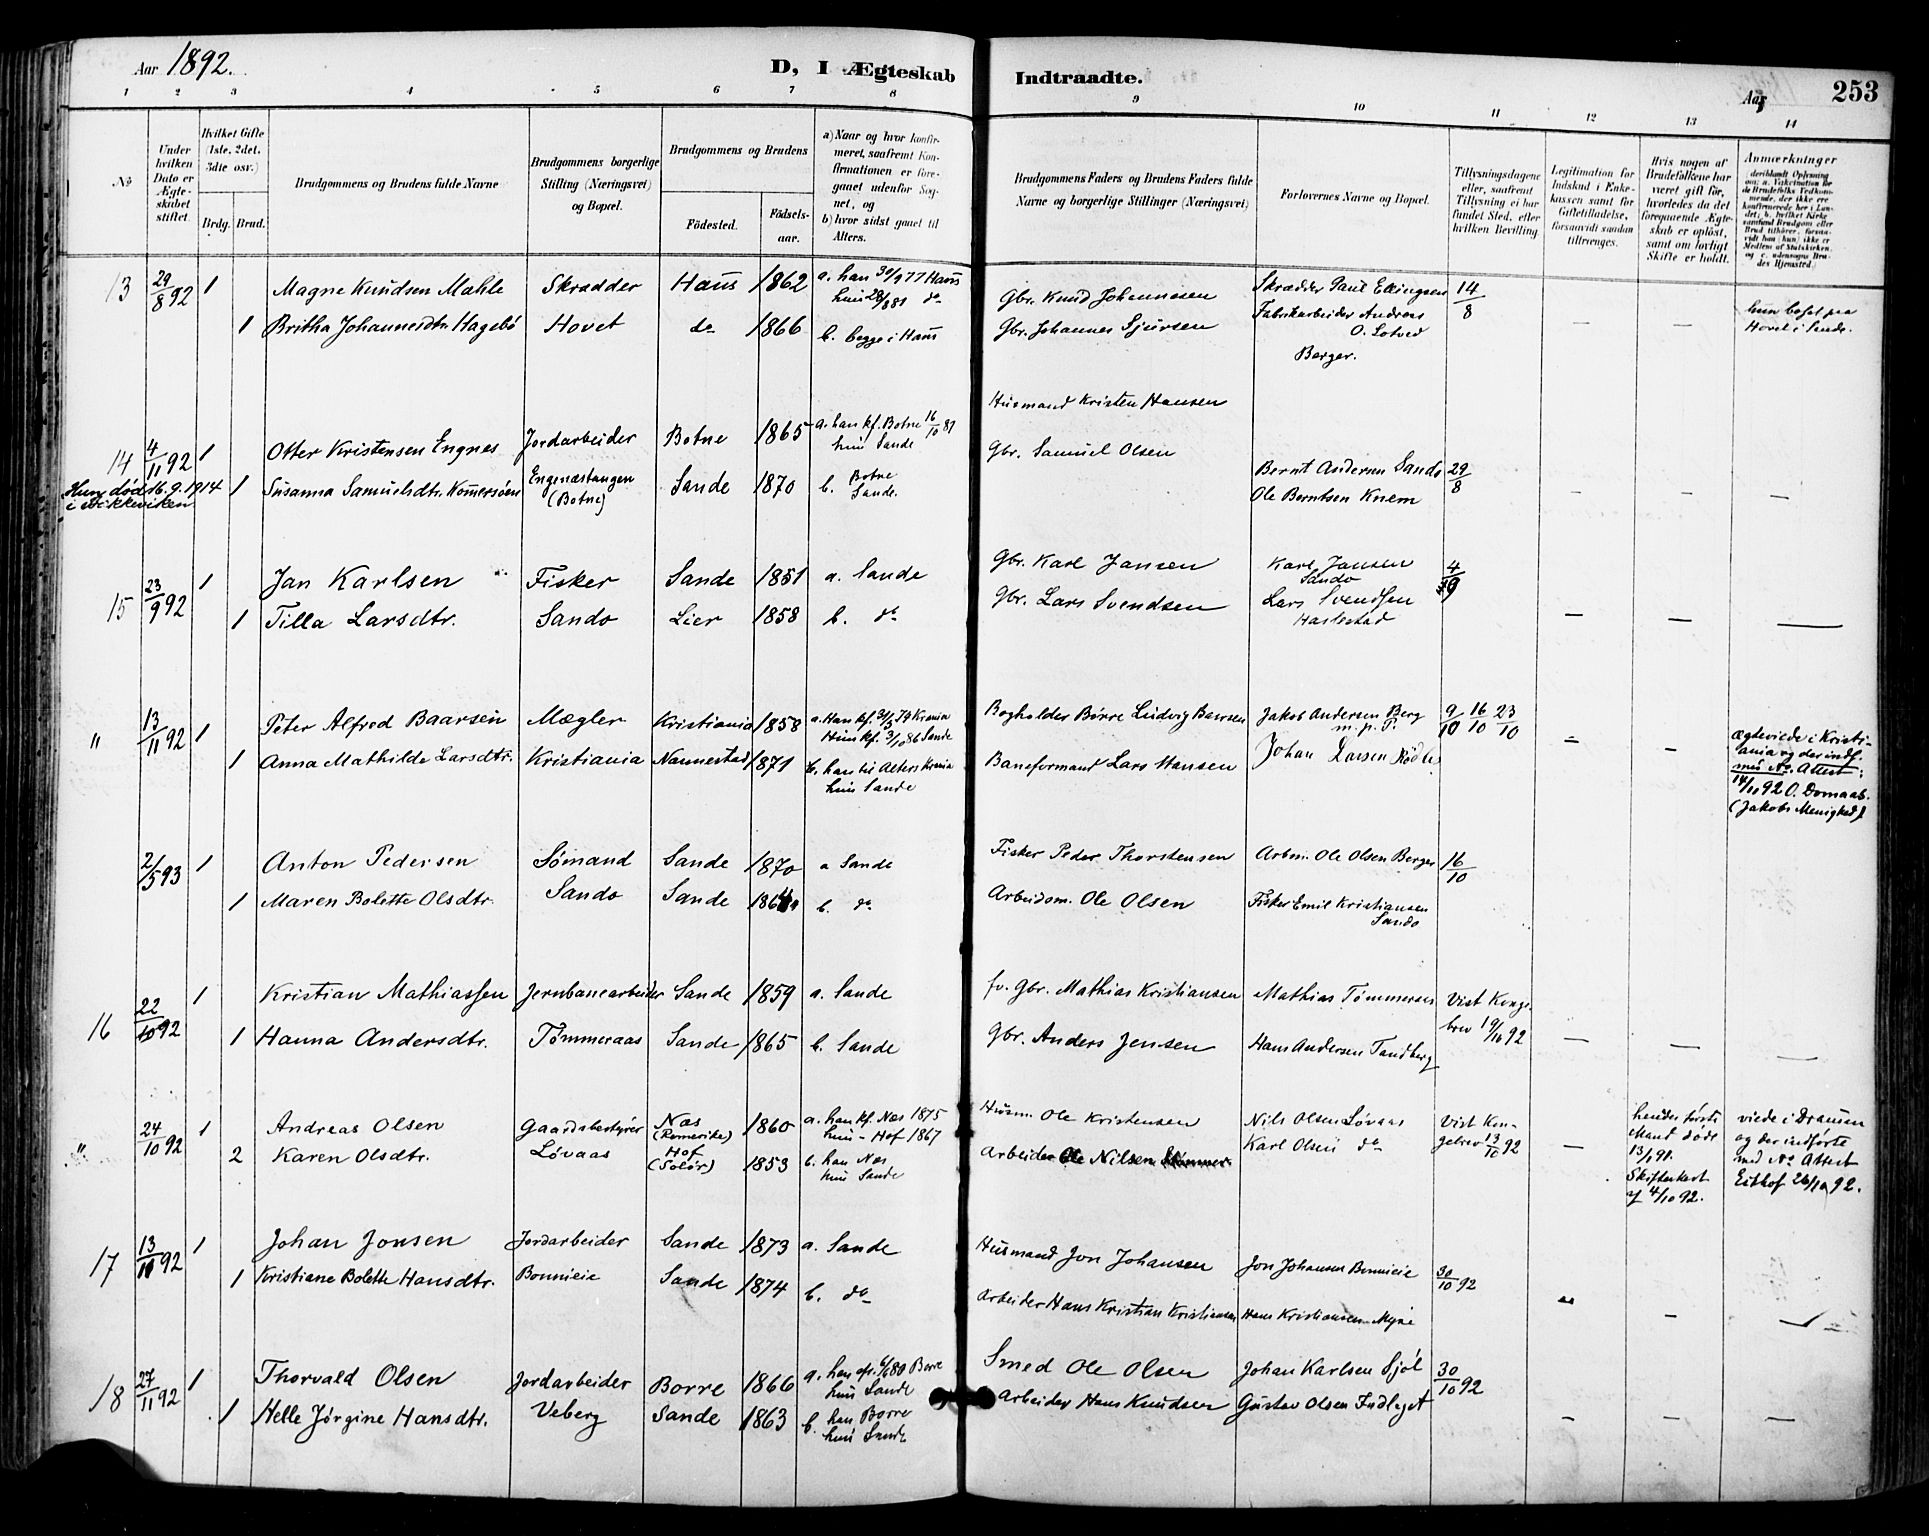 Aar 1892.
D, I Ægteskab Indtraadte.
Aar
253
1 2 3 4 5 6 7 8 9 10 11 12 13 14
No
Under hvilken Dato er Ægteskabet stiftet.
Hvilket Gifte (1ste, 2det, 3die osv.)
Brdg. Brud.
Brudgommens og Brudens fulde Navne
Brudgommens borgerlige Stilling (Næringsvei) og Bopæl.
Brudgommens og Brudens
Fødested.
Fødselsaar.
a) Naar og hvor konfirmeret, saafremt Konfirmationen er foregaaet udenfor Sognet, og
b) hvor sidst gaaet til Alters.
Brudgommens Faders og Brudens Faders fulde Navne og borgerlige Stillinger (Næringsvei)
Forlovernes Navne og Bopæl.
Tillysningsdagene eller, saafremt Tillysning ei har fundet Sted, efter hvilken Bevilling
Legitimation for Indskud i Enkekassen samt for Giftetilladelse, forsaavidt saadan tiltrænges.
Hvis nogen af Brudefolkene har været gift før, hvorledes da det foregaaende Ægteskab er opløst, samt om lovligt Skifte er holdt.
Anmærkninger
13 29/8 92 1 Magne Knudsen Mahle Skrædder Haus 1862 a. han 30/9 77 Haus Gbr. Knud Johannesen Skrædder Paul Ellingsen 14/8 hun bosat paa
hun 28/8 81 do
1 Britha Johannesdtr. Hagebö Hovet do 1866 b. begge i Haus Gbr. Johannes Sjursen Fabrikarbeider Andreas O. Lotved — — Hovet i Sande.
Berger.
14 4/11 92 1 Otter Kristensen Engnes Jordarbeider Botne 1865 a. han kf. Botne 16/10 81 Husmand Kristen Hansen
hun Sande
Hun død 16.9.1914 1 Susanna Samuelsdtr. Komersöen Engenæstangen Sande 1870 b. Botne Gbr. Samuel Olsen Bernt Andersen Sando 29/8
i Bikkeviken (Botne) Sande. Ole Berntsen Knem — — —
15 23/9 92 1 Jan Karlsen Fisker Sande 1851 a. Sande Gbr. Karl Jansen Karl Jansen 4/9
Sando
1 Tilla Larsdtr. Sando Lier 1858 b. do Gbr. Lars Svendsen Lars Svendsen — — —
Haslestad
" 13/11 92 1 Peter Alfred Baarsen Mægler Kristiania 1858 a. Han kf. Krania Bogholder Börre Ludvig Baarsen Jakob Andersen Berg 9/10 16/10 23/10
Hun kf. 3/10 86 Sande m. p. P.
1 Anna Mathilde Larsdtr. Kristiania Nannestad 1871 b. han til Alters Krania Baneformand Lars Hansen Johan Larsen — — ægteviede i Kristi-
hun Sande ania og der indf.
med No. Attest:
14/11 92 O. Domaas.
(Jakobs Menighed)
2/5 93 1 Anton Pedersen Sömand Sande 1870 a Sande Fisker Peder Thorstensen Arbm. Ole Olsen Berger 16/10
1 Maren Bolette Olsdtr. Sando Sande b. do Arbeidsm. Ole Olsen Fisker Emil Kristiansen
Sando
16 22/10 92 1 Kristian Mathiassen Jernbanearbeider Sande 1859 a. Sande fv. Gbr. Mathias Kristiansen Mathias Tömmeraas Vist Konge-
1 Hanna Andersdtr. Tömmeraas Sande 1865 b. Sande Gbr. Anders Jensen Hans Andersen Tandberg brev 19/10 92 — — —
" 24/10 92 1 Andreas Olsen Gaardsbestyrer Næs (Romerike) 1860 a. han kf. Næs 1875 Husm. Ole Kristensen Nils Olsen Løvaas Vist Kon- hendes første viede i Dramen
hun - Hof 1867 gebrev 13/10 92 Mand døde og der indførte
2 Karen Olsdtr. Løvaas Hof (Solør) 1853 b. han Næs Arbeider Ole Nilsen Karl Olsen do — 13/1 91. med No Attest
hun Sande Skifteattest Eithof 26/10 92.
af 4/10 92.
17 13/11 92 1 Johan Jonsen Jordarbeider Sande 1873 a. Sande Husmand Jon Johansen Jon Johansen Bonnieie 30/10 92
1 Kristiane Bolette Hansdtr. Bonnieie Sande 1874 b. do Arbeider Hans Kristian Kristiansen Hans Kristiansen Myre — — —
18 27/11 92 1 Thorvald Olsen Jordarbeider Borre 1866 a. han 80 Borre Smed Ole Olsen Johan Karlsen Sjöl 30/10 92
hun Sande
1 Helle Jørgine Hansdtr. Veberg Sande 1863 b. han Borre Arbeider Hans Knudsen Gustav Olsen Indleget — — —
hun Sande